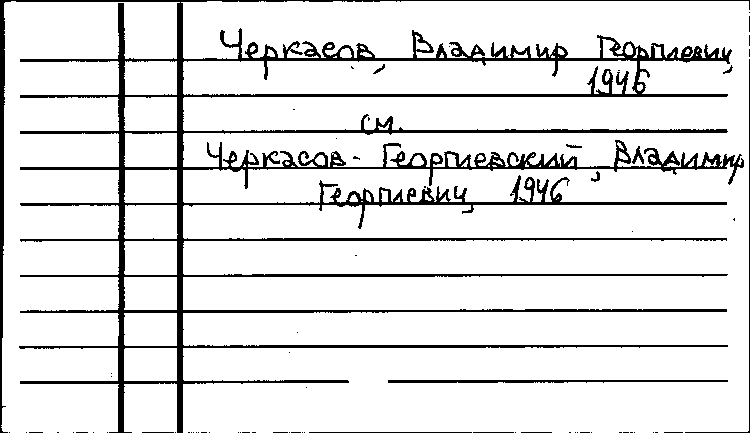 Черкасов, Владимир Георгиевич,
1946
см.
Черкасов-Георгиевский, Владимир
Георгиевич, 1946